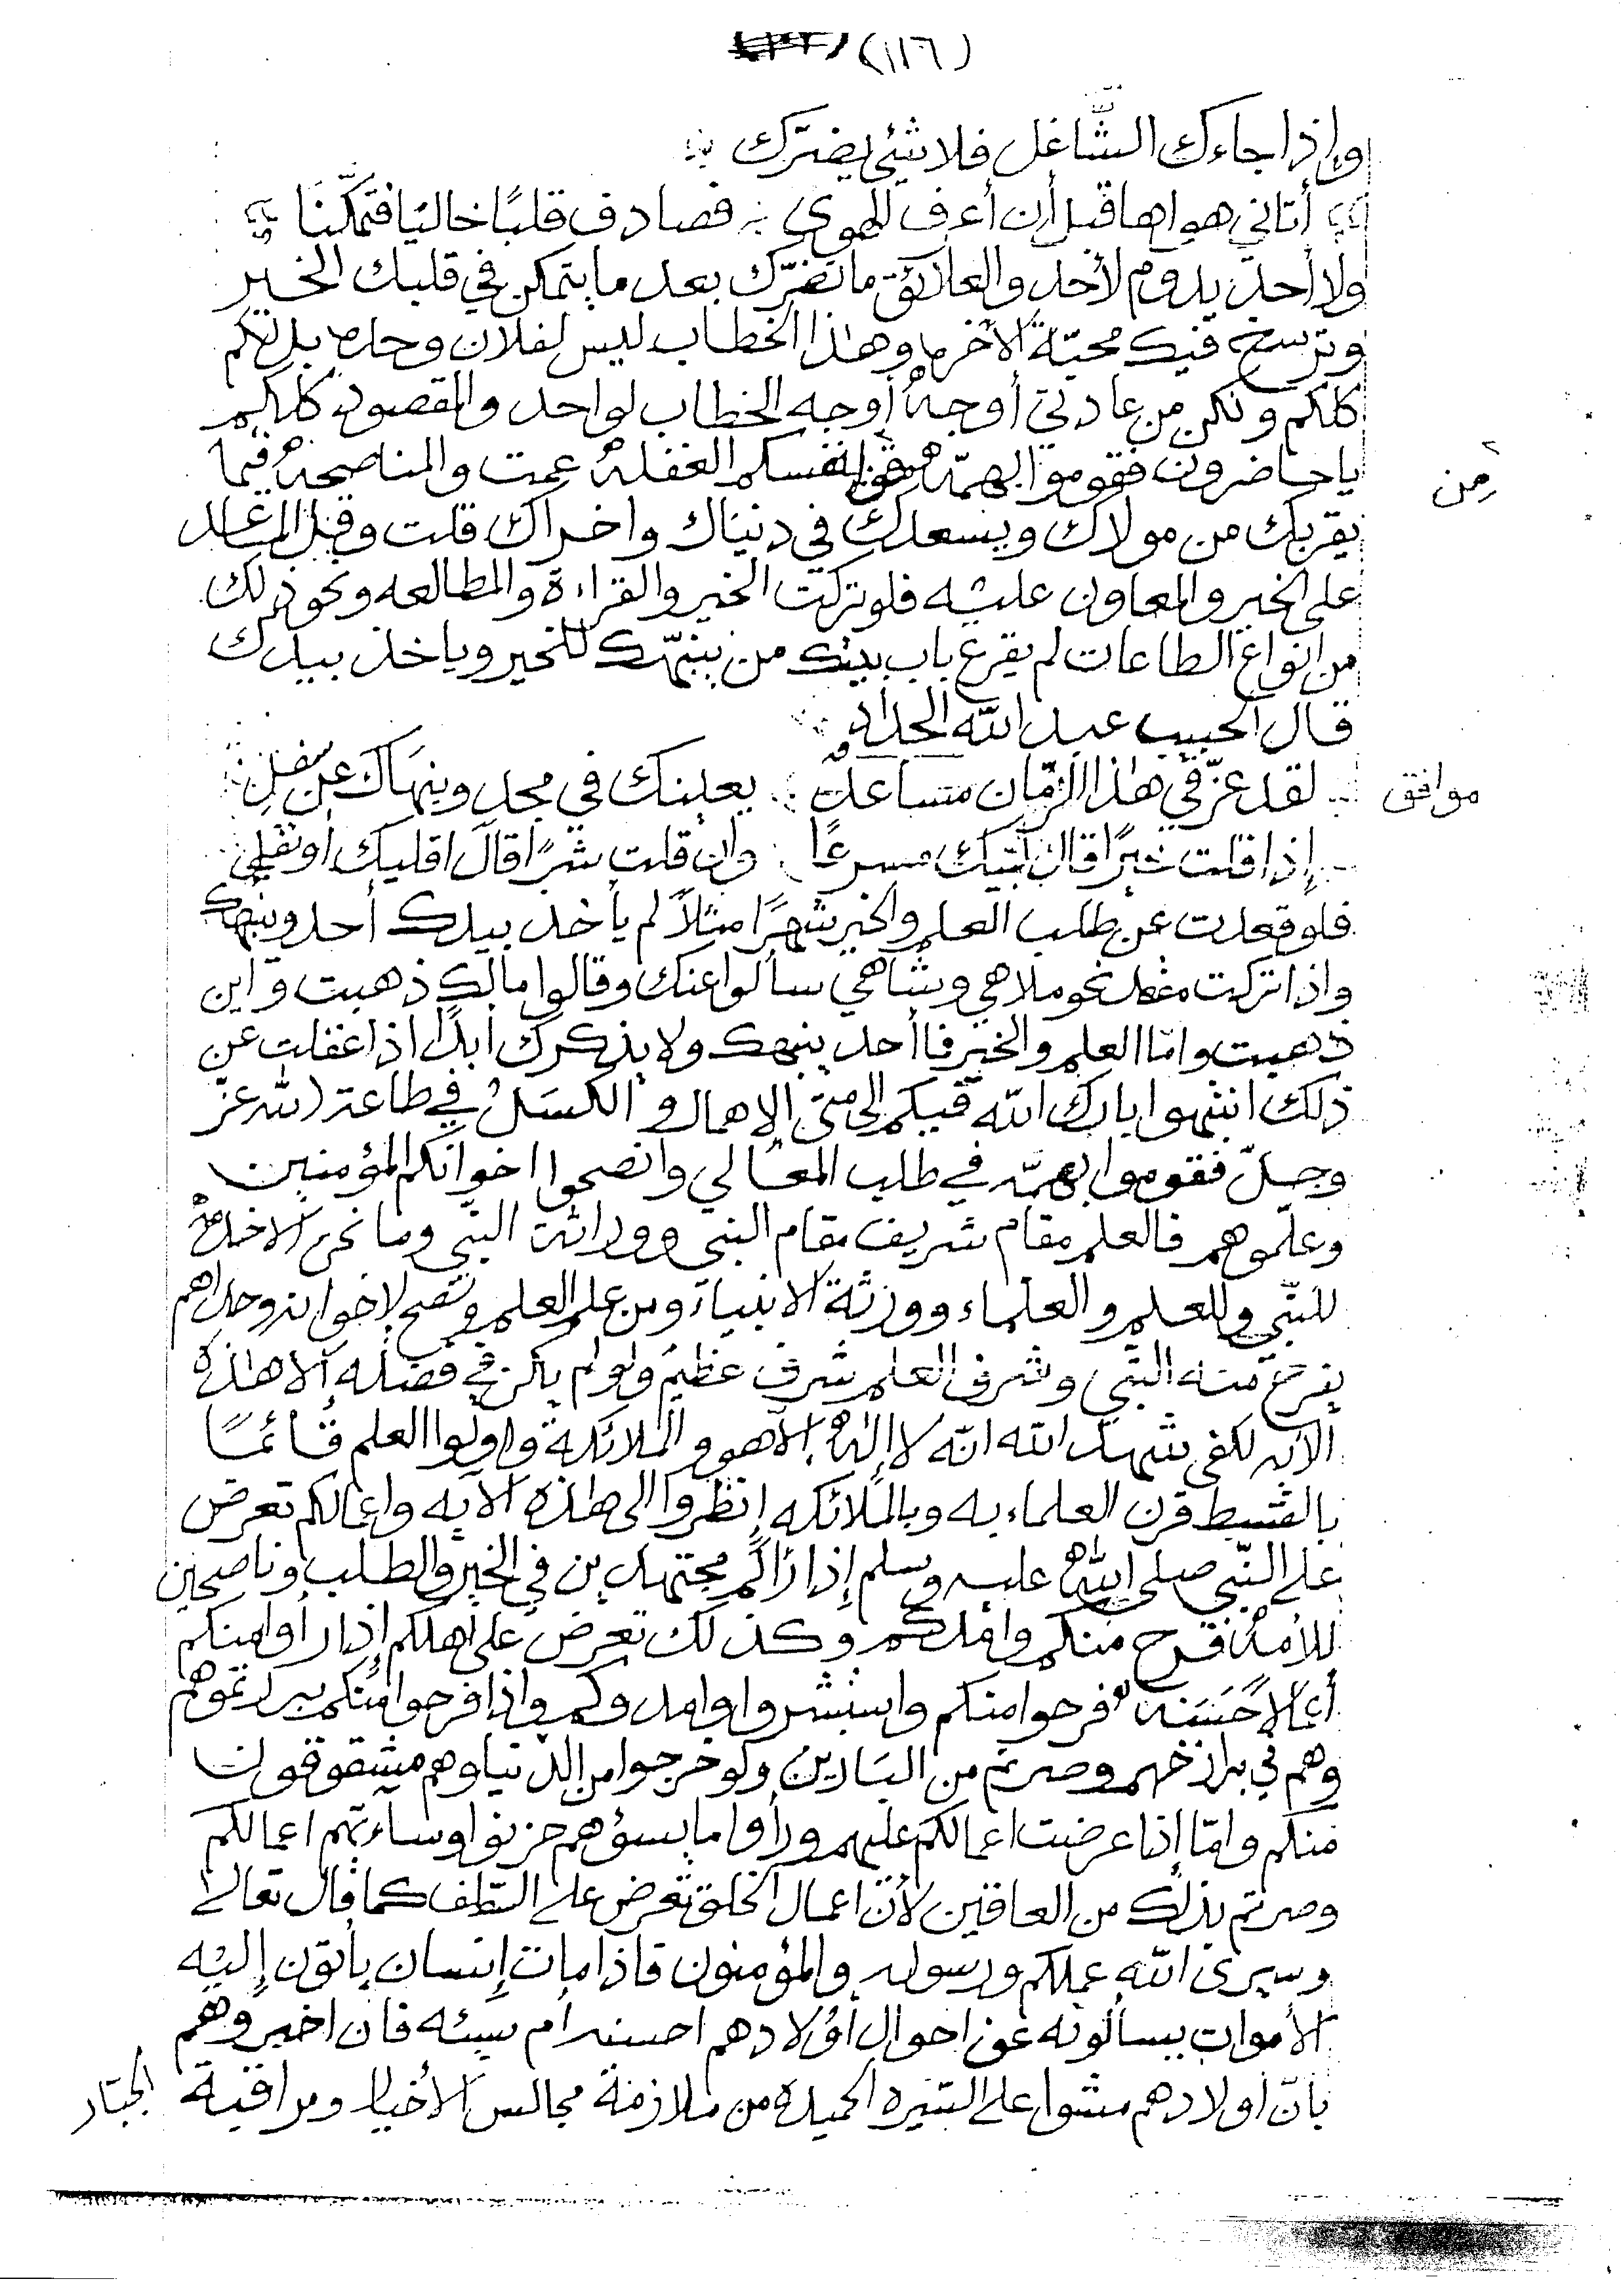 (١١٦)
وإذا جاءك الشَّاغل فلا شئ يضرّك
أتاني هواها قبل أن أعرف الهوى فصادف قلبًا خاليًا فتمكّنَا
ولا أحد يدوم لأحد والعلائق ما تضرّك بعد ما يتمكن في قلبك الخير
وترسخ فيك محبّة الآخره وهذا الخطاب ليس لفلان وحده بل لكم
كلكم ولكن من عادتي أوجه أوجه الخطاب لواحد والمقصود كلكم
يا حاضرون فقوموا بهمّه من انفسكم الغفله عمت والمناصحه فيما
من
يقربك من مولاك ويسعدك في دنياك واخراك قلت وقل المساعد
على الخير والمعاون عليه فلو تركت الخير والقراءة والمطالعه ونحو ذلك
من انواع الطاعات لم يقرع باب بيتك من ينبّهك للخير وياخذ بيدك
قال الحبيب عبد الله الحداد
لقد عزّ في هذا الزّمان مساعد يعينك في مجد وينهاك عن سفل
موافق
إذا قلت خيرًا قال لبّيك مسرعًا وان قلت شرًا قال اقليك أو تقلي
فلو قعدت عن طلب العلم والخير شهرًا مثلاً لم يأخذ بيدك أحد وينبهك
واذا تركت نحو ملاهي وشاهي سألوا عنك وقالوا مالك ذهبت واين
ذهبت وامّا العلم والخير فما أحد ينبهك ولا يذكرك ابدًا اذا غفلت عن
ذلك انتبهوا بارك الله فيكم الى متى الاهمال والكسَل في طاعة الله عزّ
وجلّ فقوموا بهمّه في طلب المعالي وانصحوا اخوانكم المؤمنين
وعلّموهم فالعلم مقام شريف مقام النبي ووراثة النبّي وما نحن الا خدامه
للنبّي وللعلم والعلماء وورثة الانبياء ومن علم العلم ونصح لإخوانه وهداهم
يفرح منه النبّي وشرف العلم شرف عظيم ولو لم يكن في فضله إلا هذه
الآيه لكفى شهد الله انّه لا إله إلاّ هو والملائكة واولوا العلم قائمًا
بالقسط قرن العلماء به وبالملائكه إنظروا الى هذه الآيه واعمالكم تعرض
على النّبي صلى الله عليه وسلم إذا رآكم مجتهدين في الخير والطلب وناصحين
للأمه فرح منكم وامدكم وكذلك تعرض على اهلكم إذا رأوا منكم
أعمالاً حَسَنه فرحوا منكم واستبشروا وامدوكم واذا فرحوا منكم بررتموهم
وهم في برازخهم وصرتم من البارين ولو خرجوا من الدنيا وهم مشقوقون
منكم وامّا إذا عرضت اعمالكم عليهم ورأوا ما يسؤهم حزنوا وساءتهم اعمالكم
وصرتم بذلك من العاقين لأنّ اعمال الخلق تعرض على السّلف كما قال تعالى
وسيرى الله عملكم ورسوله والمؤمنون فاذا مات إنسان يأتون إليه
الأموات يسألونه عن احوال أولادهم احسنه أم سيئه فان اخبروهم
بأنّ أولادهم مشوا على السّيره الحميده من ملازمة مجالس الأخيار ومراقبة
الجبّار